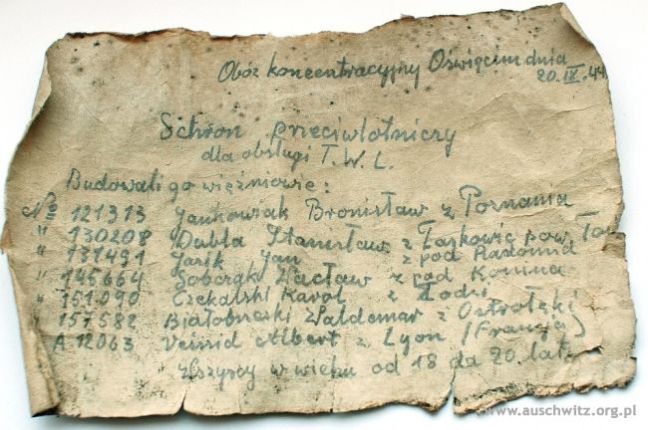 Obóz koncentracyjny Oświęcim dnia
20.IX.44
Schron przeciwlotniczy
dla obsługi T.W.L.
Budowali go więźniowie:
No 121313 Jankowiak Bronisław z Poznania
" 130208 Dubla Stanisław z Łaskowic pow.
" 131491 Jasik Jan z pod Radomia
" 145664 Sobczak Wacław z pod Konina
" 151090 Czekalski Karol z Łodzi
157582 Białobrzeski Waldemar z Ostrołęki
A 12063 Veissid Albert z Lyon (Francja)
Wszyscy w wieku od 18 do 20 lat
www.auschwitz.org.pl